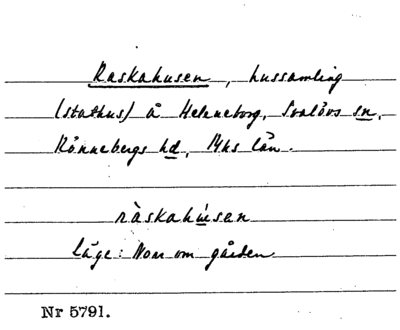 Raskahusen, hussamling
(stathus) å Heleneborg, Svalövs sn,
Rönnebergs hd, Mhs län.
ràskahu̇́sen
Läge: Norr om gården
Nr 5791.